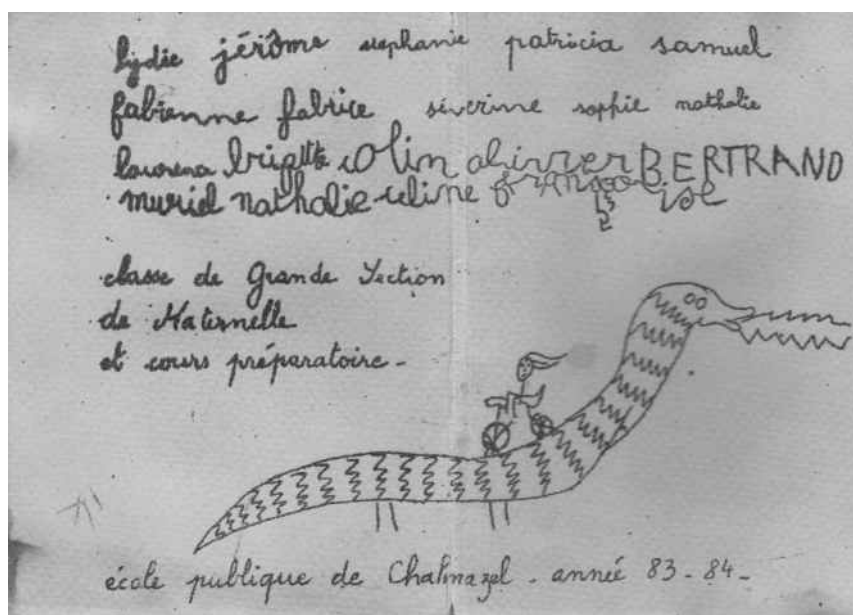 lydie jérôme stéphanie patricia samuel
fabienne fabrice séverine sophie nathalie
laurena brigitte colin olivier BERTRAND
muriel nathalie celine françoise
classe de Grande Section
de Maternelle
et cours préparatoire -
école publique de Chalmazel - année 83 - 84 -